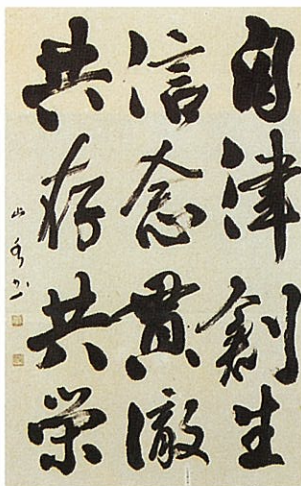 自律創生
信念貫徹
共存共栄